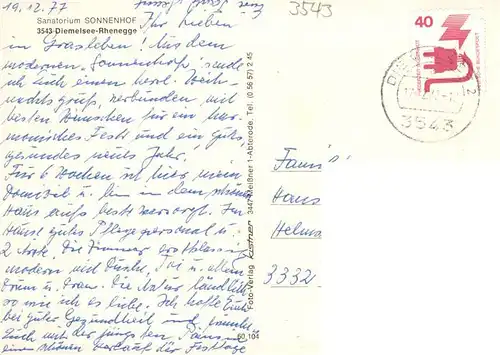 19.12.77
3543
Sanatorium SONNENHOF
3543-Diemelsee-Rhenegge
Ihr Lieben
in Grasleben! Aus dem
modernen „Sonnenhof“ sende
ich Euch einen herzl. Weih-
nachtsgruß, verbunden mit
besten Wünschen für ein har-
monisches Fest und ein gutes
gesundes neues Jahr.
Für 6 Wochen ist hier mein
Domizil u. bin in dem schönen
Haus aufs beste versorgt. Im
Hause gutes Pflegepersonal u.
2 Ärzte. Die Zimmer erstklassig
modern mit Dusche,
drum u. dran. Die Natur ländlich
so wie ich es liebe. Ich hoffe Euch
bei guter Gesundheit und wünsche
Euch mit der jüngsten
einen schönen Verlauf der Festtage
Foto-Verlag Kratzner 3447 Meißner 1-Abterode, Tel. (0 56 57) 2 45
50 104
40
DEUTSCHE BUNDESPOST
3543
Hans
3332